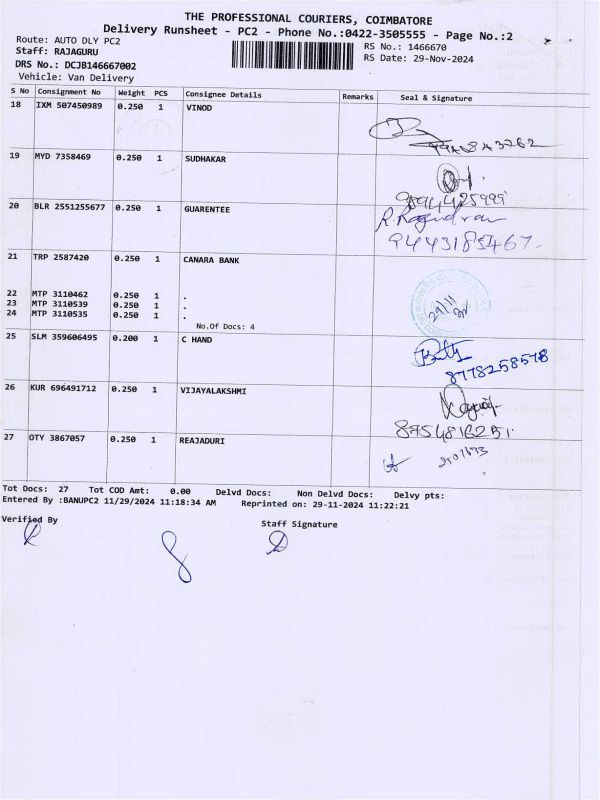 THE PROFESSIONAL COURIERS, COIMBATORE
Delivery Runsheet - PC2 - Phone No.:0422-3505555 - Page No.:2
Route: AUTO DLY PC2
RS No.: 1466670
Staff: RAJAGURU
RS Date: 29-Nov-2024
DRS No.: DCJB146667002
Vehicle: Van Delivery
S No Consignment No Weight PCS Consignee Details Remarks Seal & Signature
18 IXM 507450989 0.250 1 VINOD
19 MYD 7358469 0.250 1 SUDHAKAR
9894425999
20 BLR 2551255677 0.250 1 GUARENTEE
9443185467.
21 TRP 2587420 0.250 1 CANARA BANK
22 MTP 3110462 0.250 1 .
23 MTP 3110539 0.250 1 .
24 MTP 3110535 0.250 1 .
29/11
No.Of Docs: 4
25 SLM 359606495 0.200 1 C HAND
8778258578
26 KUR 696491712 0.250 1 VIJAYALAKSHMI
8754816251.
27 OTY 3867057 0.250 1 REAJADURI
Tot Docs: 27 Tot COD Amt: 0.00 Delvd Docs: Non Delvd Docs: Delvy pts:
Entered By :BANUPC2 11/29/2024 11:18:34 AM Reprinted on: 29-11-2024 11:22:21
Verified By
Staff Signature